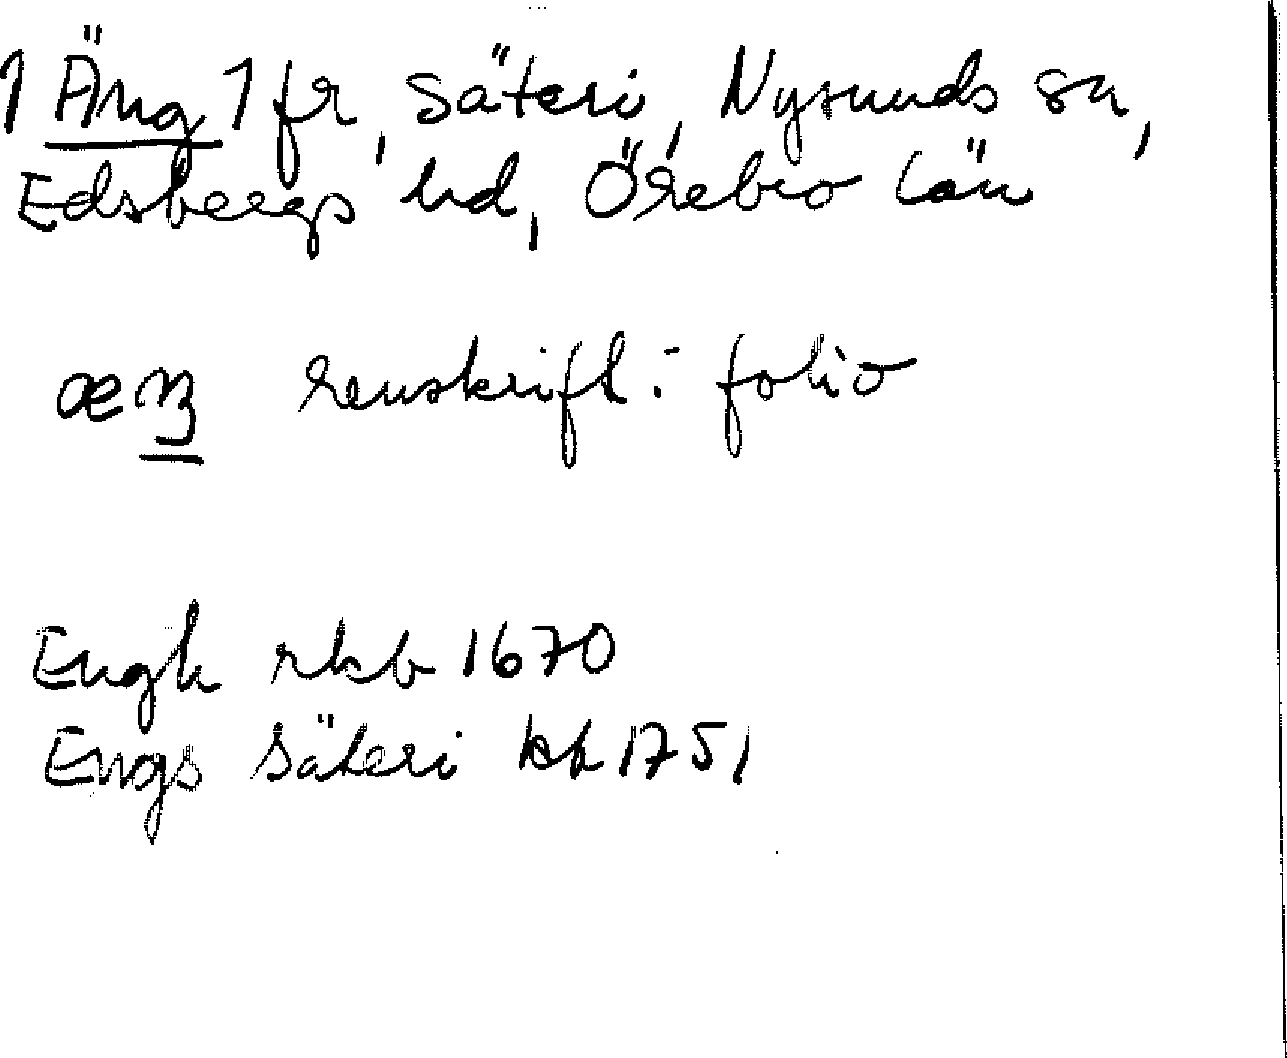 1 Äng 1 fr, säteri, Nysunds sn,
Edsbergs hd, Örebro län
æŋ renskrift i folio
Engh rkb 1670
Engs säteri kb 1751